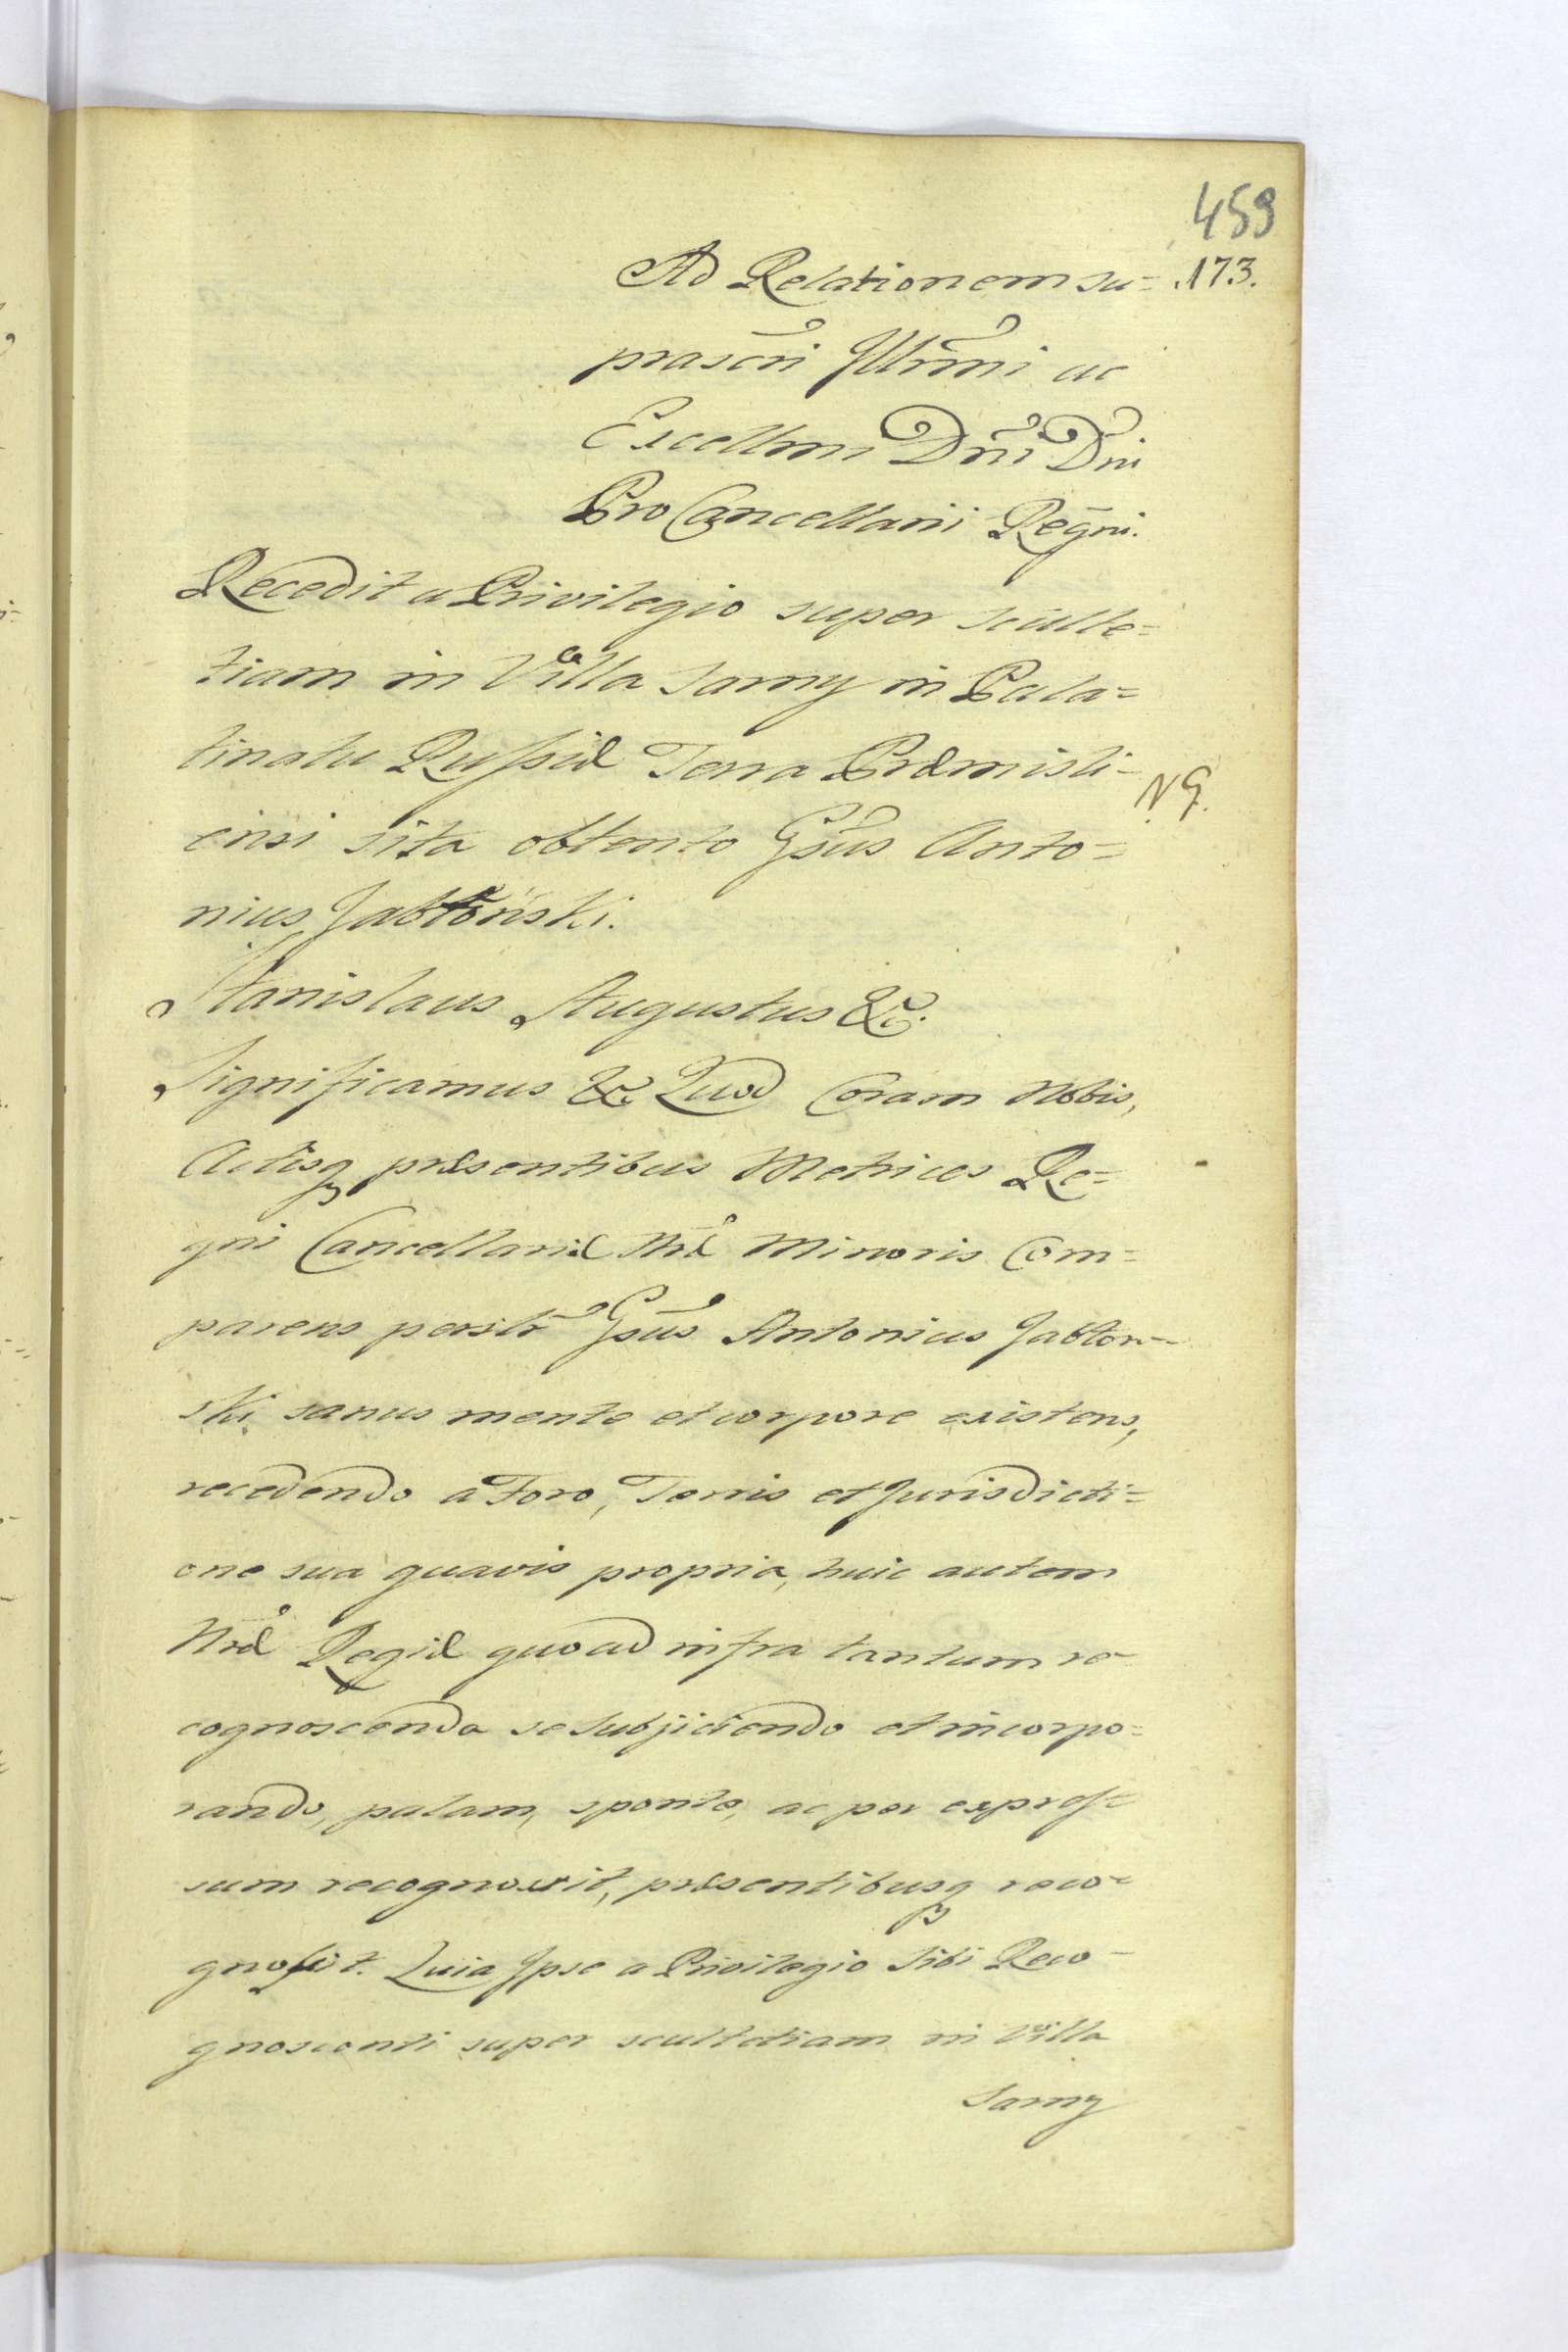 459
Ad Relationem su= .173.
prascri Illrmi ac
Excellmi Dni Dni
Pro Cancellarii Regni.
Recedit a Privilegio super sculte=
tiam in Villa Sarny in Pala=
tinatu Russiæ Terra Præmisli-
ensi sita obtento Gsus Anto=
nius Jabłoński.
Stanislaus Augustus &c.
Significamus &c Quod Coram Nobis,
Actisq præsentibus Metrices Re=
gni Cancellariæ Nræ Minoris Com=
parens persltr Gsus Antonius Jabłon=
ski sanus mente et corpore existens,
recedendo a Foro, Terris et Jurisdicti=
one sua quavis propria, huic autem
Nræ Regiæ quoad infra tantum re=
cognoscenda se subjiciendo et incorpo=
rando, palam, sponte, ac per expres=
sum recognovit, præsentibusq reco=
gnoscit. Quia Ipse a Privilegio Sibi Reco=
gnoscenti super scultetiam in Villa
Sarny